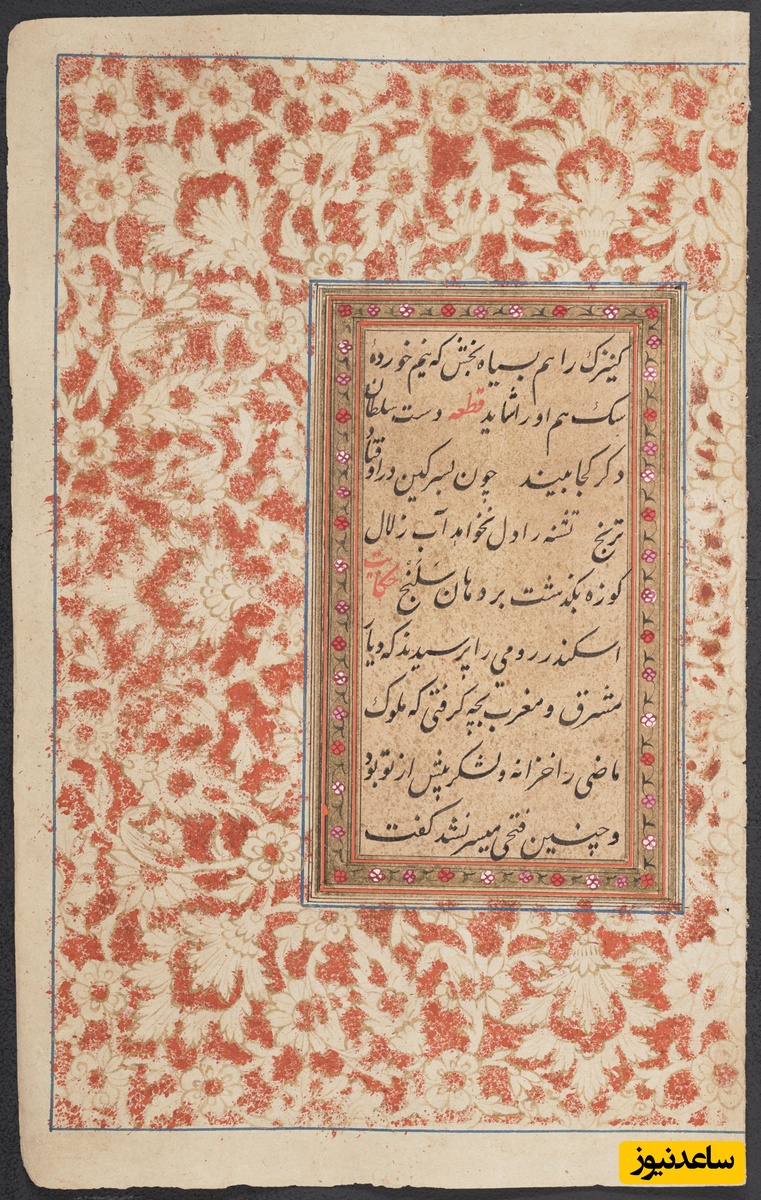 کنیزک را هم بسیاه بخش که نیم خوردهٔ
سک هم او را شاید قطعه دست سلطان
دکر کجا بیند چون بسرکین در اوفتاد
ترنج تشنه را دل نخواهد آب زلال
کوزه بکذشت بر دهان سکنج حکایت
اسکندر رومی را پرسیدند که دیار
مشرق و مغرب بچه کرفتی که ملوک
ماضی را خزانه و لشکر بیش از تو بود
و چنین فتحی میسر نشد کفت
ساعدنیوز